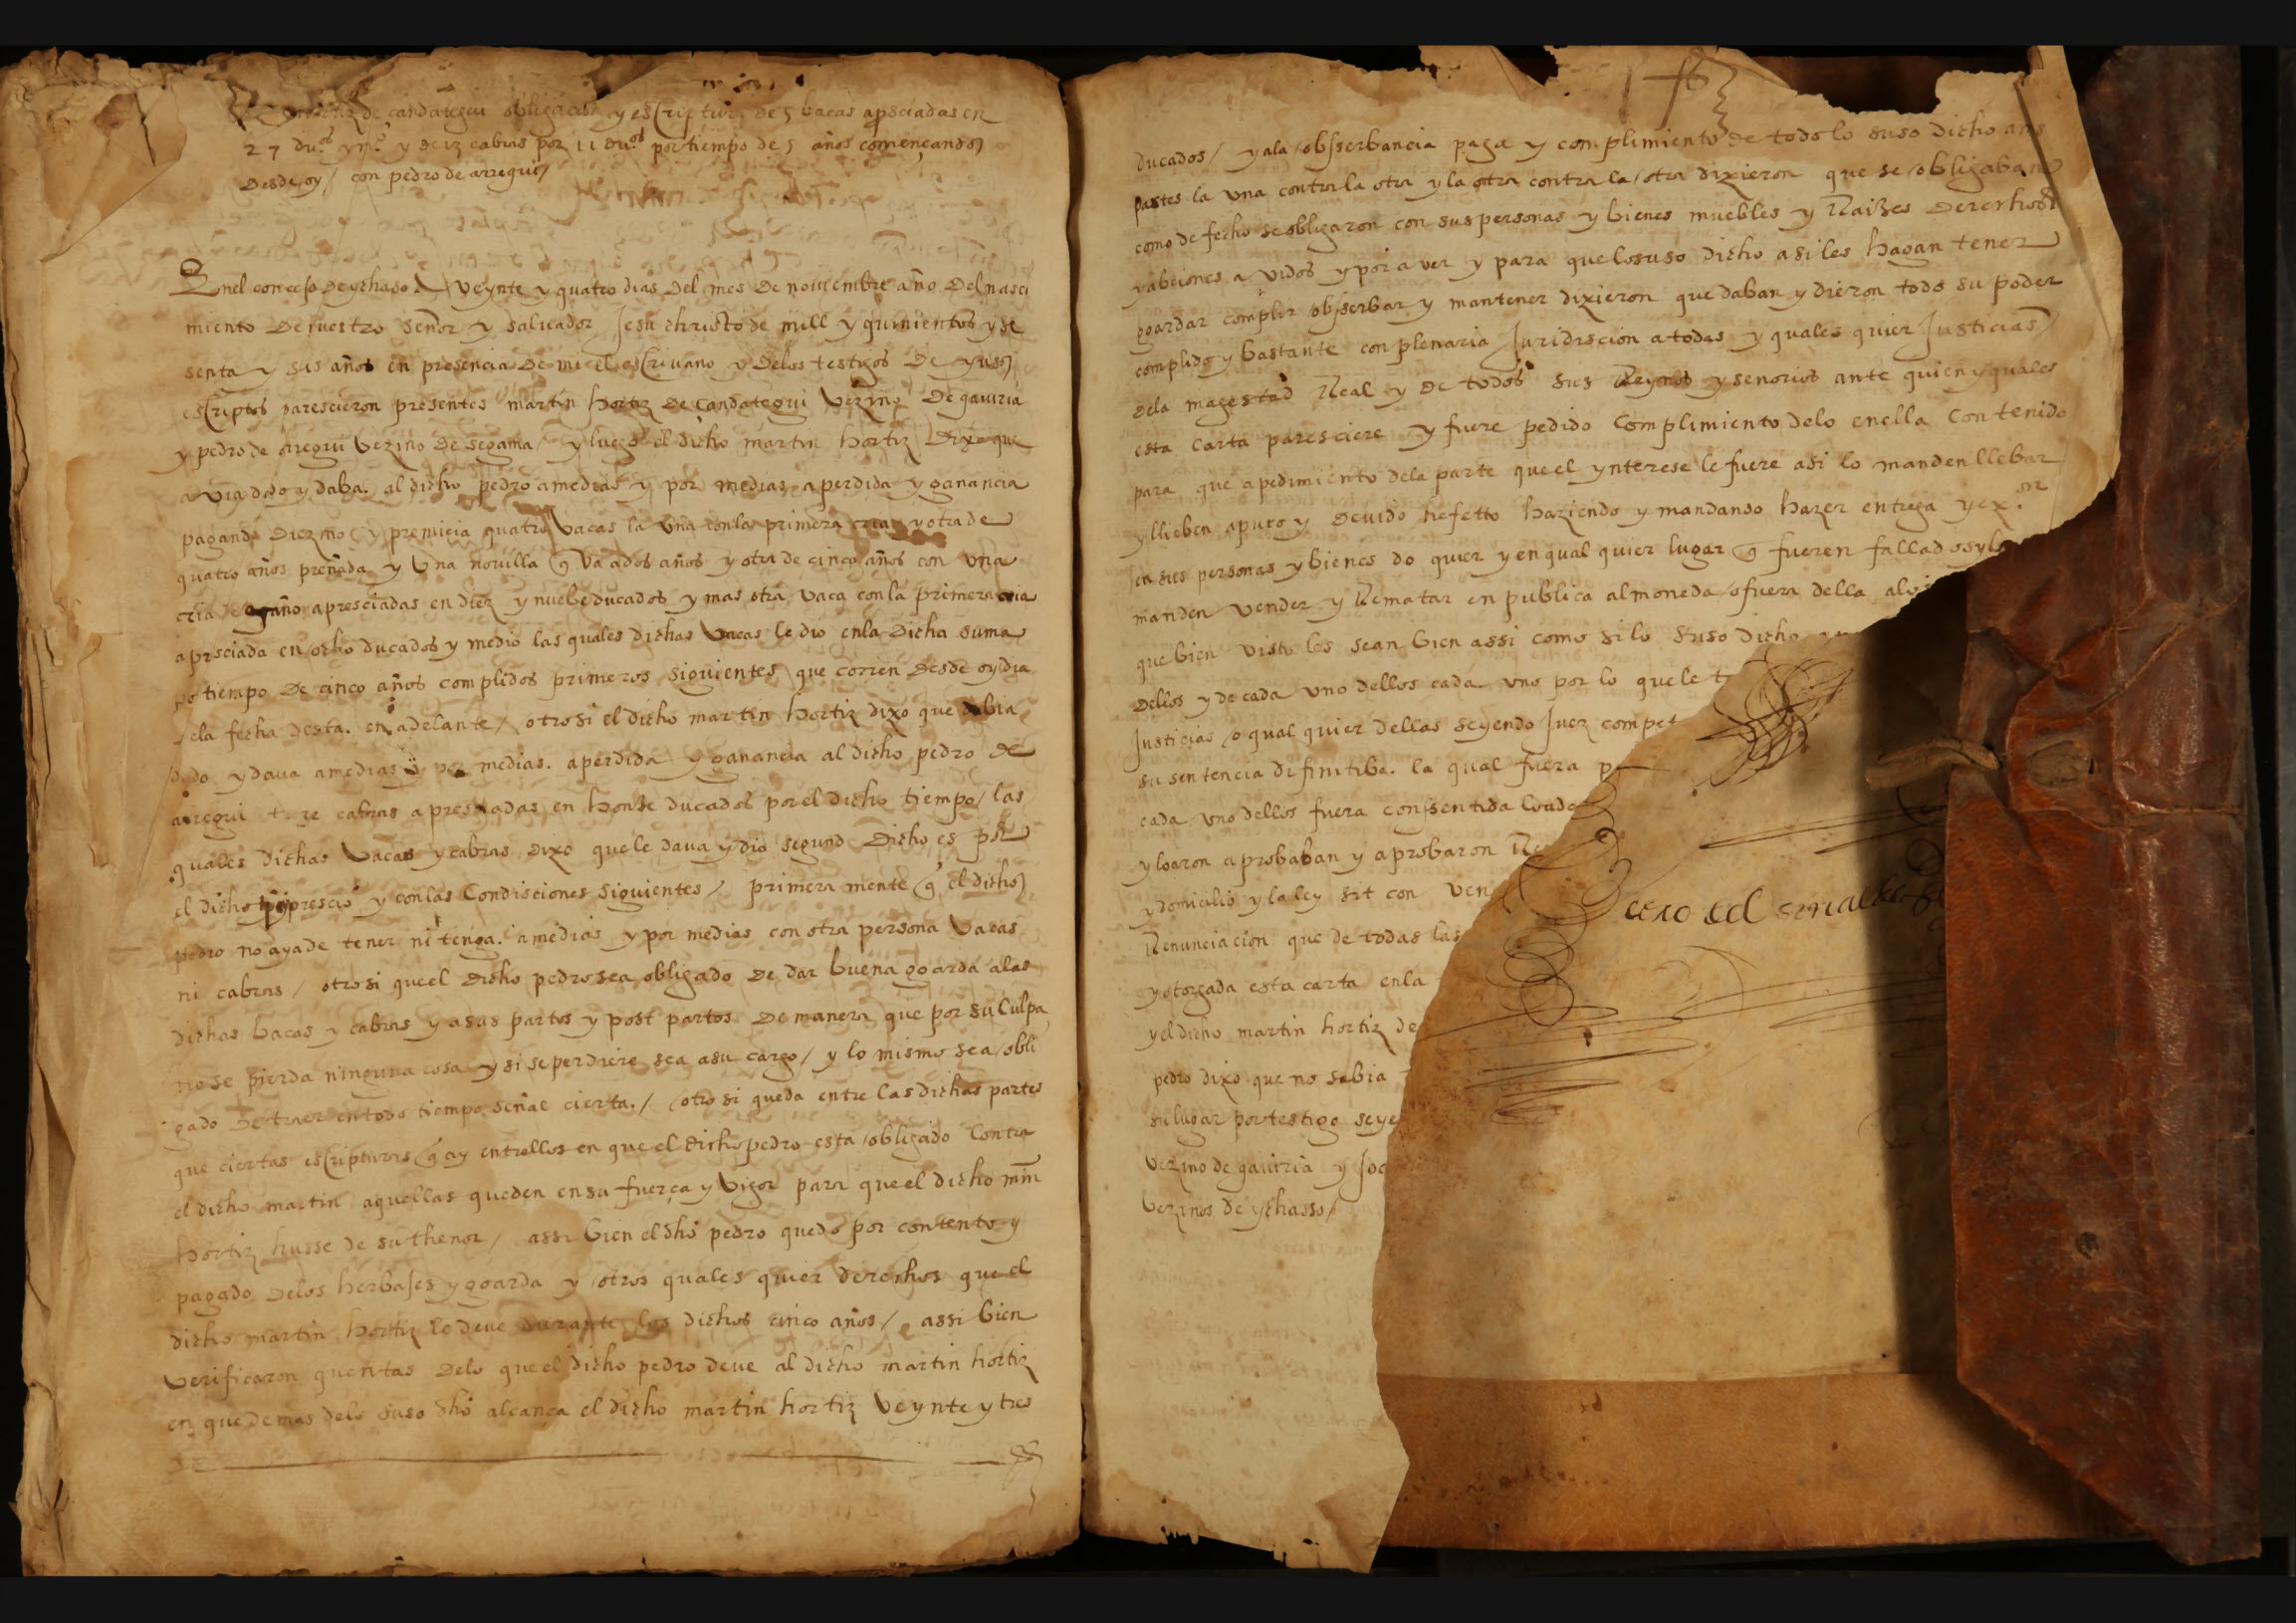 de candategui obligacion y escriptura de 5 bacas apreciadas en
27 du.os y m.o y de 13 cabras por 11 du.os por tiempo de 5 años començando
desde oy / con pedro de arregui /
Enel concejo de ychaso A veynte y quatro dias del mes de nouiembre año del nasci
miento de nuestro señor y saluador Jesu christo de mill y quinientos y se
senta y seis años en presencia de mi el escriuano y delos testigos de yuso
escriptos parescieron presentes martin hortiz de candategui vezino de gauiria
y pedro de arregui vezino de segama / y luego el dicho martin hortiz dixo que
avia dado y daba. al dicho pedro a medias y por medias a perdida y ganancia
pagando diezmo y premicia quatro vacas la una con la primera cria y otra de
quatro años preñada y una nouilla q va a dos años y otra de cinco años con una
cria de ogaño apresciadas en diez y nuebe ducados y mas otra vaca con la primera cria
apresciada en ocho ducados y medio las quales dichas vacas le dio enla dicha suma
por tiempo de cinco años complidos primeros siguientes que corren desde oy dia
dela fecha desta. en adelante / otrosi el dicho martin hortiz dixo que abia
dado y daua a medias y por medias. a perdida y ganancia al dicho pedro de
arregui treze cabras apresciadas en honze ducados por el dicho tiempo / las
quales dichas vacas y cabras dixo que le daua y dio segund dicho es por
el dicho prescio y con las condisciones siguientes / primeramente q el dicho
pedro no aya de tener ni tenga. a medias y por medias con otra persona vacas
ni cabras / otrosi que el dicho pedro sea obligado de dar buena goarda alas
dichas bacas y cabras y a sus partos y post partos de manera que por su culpa
no se pierda ninguna cosa y si se perdiere sea a su cargo / y lo mismo sea obli
gado de traer en todo tiempo señal cierta. / otrosi queda entre las dichas partes
que ciertas escripturas q ay entrellos en que el dicho pedro esta obligado contra
el dicho martin aquellas queden en su fuerça y vigor para que el dicho mrn
hortiz husse de su thenor / assi bien el dho pedro quedo por contento y
pagado delos herbajes y goarda y otros quales quier derechos que el
dicho martin hortiz le deue durante los dichos cinco años / assi bien
verificaron quentas delo que el dicho pedro deue al dicho martin hortiz
en que demas delo suso dho alcança el dicho martin hortiz veynte y tres
ducados / y ala obserbancia paga y complimiento de todo lo suso dicho ambas
partes la una contra la otra y la otra contra la otra dixieron que se obligaban
como de fecho se obligaron con sus personas y bienes muebles y Raizes derechos
y abciones avidos y por aver y para que lo suso dicho asi les hagan tener
goardar complir obserbar y mantener dixieron que daban y dieron todo su poder
complido y bastante con plenaria Juridiscion a todas y quales quier Justicias
dela magestad Real y de todos sus Reynos y señorios ante quien y quales
esta carta paresciere y fuere pedido complimiento delo en ella contenido
para que a pedimiento dela parte que el ynterese le fuere asi lo manden llebar
y llieben a puro y deuido hefetto haziendo y mandando hazer entrega y ex.on
en sus personas y bienes do quier y en qual quier lugar q fueren fallados y los
manden vender y Rematar en publica almoneda o fuera della al
que bien visto les sean bien assi como si lo suso dicho
dellos y de cada uno dellos cada uno por lo que le t
Justicias o qual quier dellas seyendo Juez compet
su sentencia difinitiba. la qual fuera p
cada uno dellos fuera consentida loada
y loaron aprobaban y aprobaron Re
y domicilio y la ley sit con ven
Renunciacion que de todas las
y otorgada esta carta enla
y el dicho martin hortiz de
pedro dixo que no sabia
su lugar por testigo seye
vezino de gauiria y Joa
vezinos de ychasso /